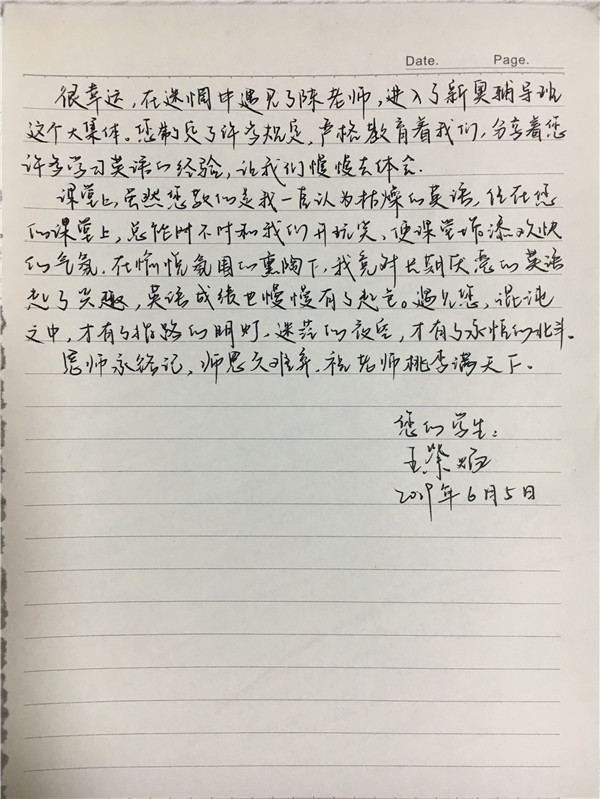 Date. Page.
很幸运，在迷惘中遇见了陈老师，进入了新奥辅导班
这个大集体。您制定了许多规定，严格教育着我们，分享着您
许多学习英语的经验，让我们慢慢去体会.
课堂上，虽然您教的是我一直认为枯燥的英语，但在您
的课堂上，总能时不时和我们开玩笑、使课堂增添欢快
的气氛。在愉悦氛围的熏陶下，我竟对长期厌恶的英语
起了兴趣，英语成绩也慢慢有了起色。遇见您，混沌
之中，才有了指路的明灯.迷茫的夜空，才有了永恒的北斗.
恩师永铭记，师恩久难弃.祝老师桃李满天下。
您的学生：
王荣
2019年6月5日